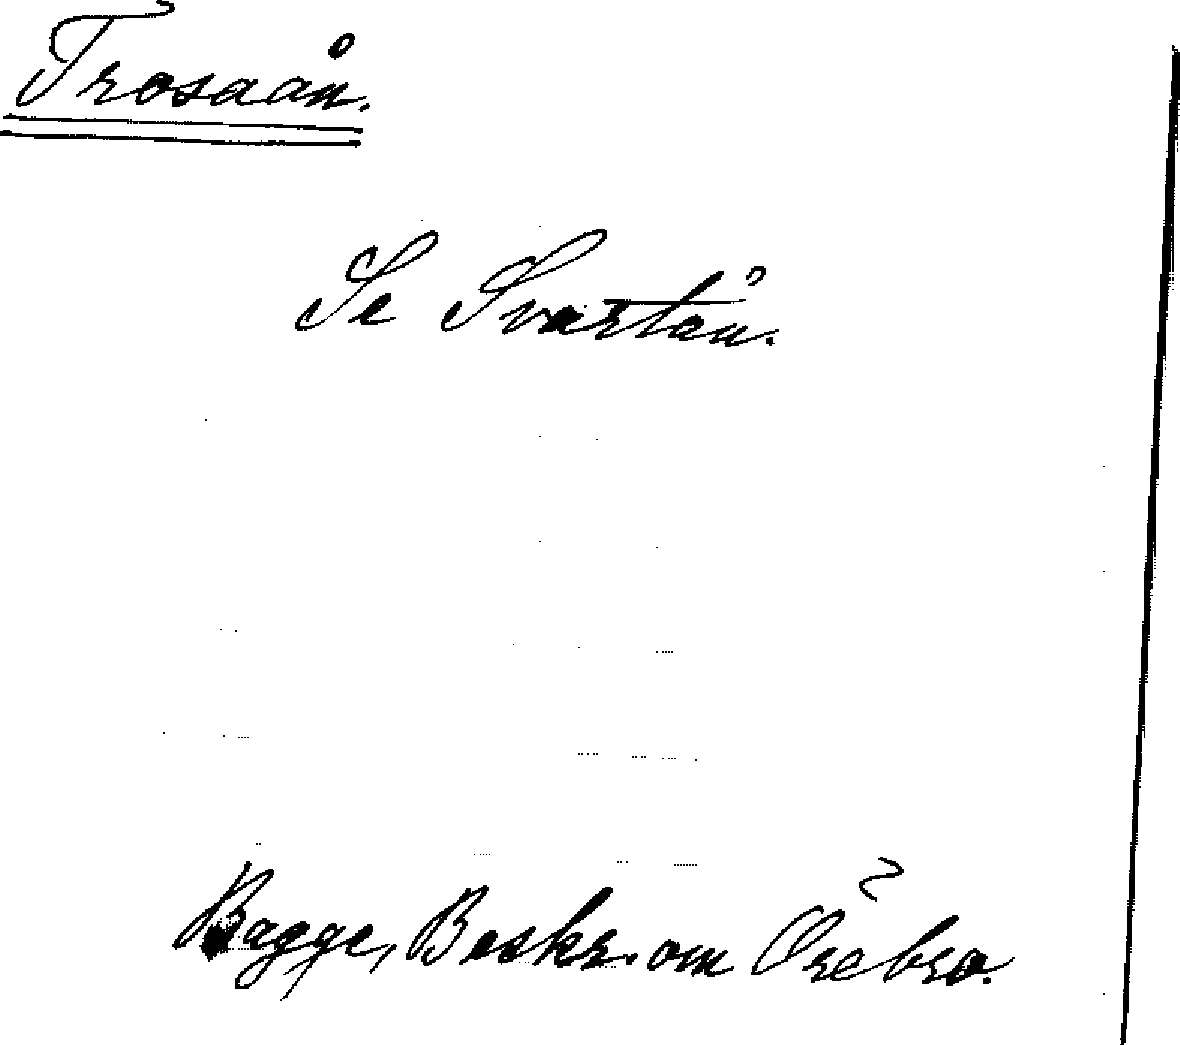 Trosaån.
Se Svartån.
Bagge, Beskr. om Örebro.